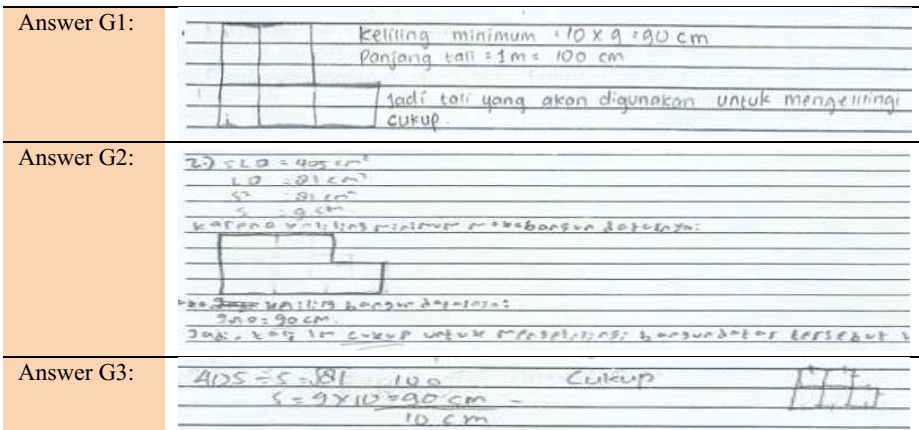 Answer G1:
Keliling minimum : 10 x 9 = 90 cm
Panjang tali = 1 m = 100 cm
Jadi tali yang akan digunakan untuk mengelilingi
cukup.
Answer G2:
2.) 5 L □ = 405 cm²
L □ = 81 cm²
s² = 81 cm²
s = 9 cm
karena keliling minimum maka bangun datarnya:
keliling bangun datarnya:
9 x 10 = 90 cm.
Jadi, tali 1m cukup untuk mengelilingi bangun datar tersebut
Answer G3:
405 ÷ 5 = 81 100 Cukup
s = 9 x 10 = 90 cm -
10 cm